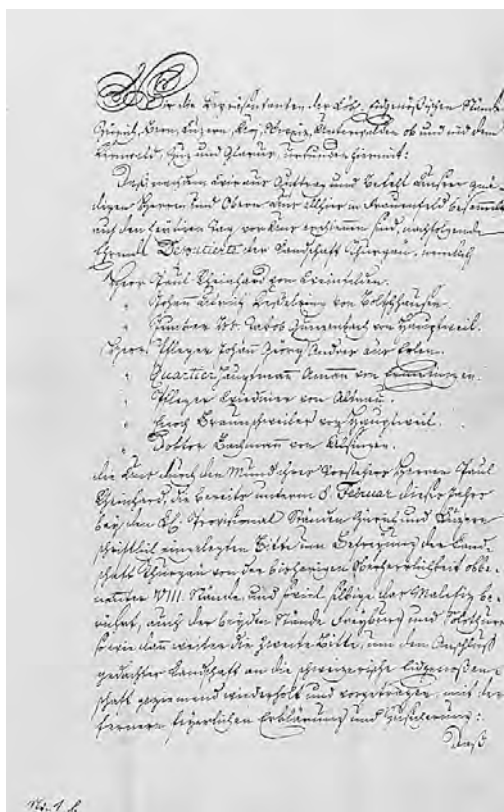 Wir die Repräsentanten der Löbl. Eidgenößischen Stände
Zürich, Bern, Luzern, Ury, Schwyz, Unterwalden ob und nid dem
Kernwald, Zug und Glarus, urkunden hiermit:
Daß nachdem Wir aus Auftrag und Befehl Unserer gnä-
digen Herren und Obern aus allhier in Frauenfeld
auf den heutigen Tag, vor Uns erschienen sind, nachfolgende
Ehrende Deputierte der Landschaft Thurgau, nemlich
Herr Paul Reinhard von Weinfelden.
" Johann Ulrich Kesselring von Boltshausen.
" Jakob Gonzenbach von Hauptweil.
Herr Pfleger Johann Georg Ander aus Erlen.
" Quartier Hauptmann Amann von Ermatingen.
" Pfleger von Altnau.
" Enoch Brunschweiler von Hauptweil.
" Doktor
die Uns durch den Mund ihres Vorstehers Herren Paul
Reinhard, die bereits unterm 8. Februar dieses Jahrs
bey den Provisional Ständen Zürich und Luzern
schriftlich eingelegten Bitte um Befreyung der Land-
schaft Thurgau von der bisherigen Oberherrlichkeit obbe-
nannter VIII. Stände, und so viel selbige das Malefiz be-
rührt, auch der beyden Stände Freyburg und Solothurn
so wie dann weiter die zweite Bitte, um den Anschluß
gedachter Landschaft an die schweizerische Eidgenoßen-
schaft geziemend wiederholt und vorgetragen, mit der
fernern feyerlichen Erklärung und Zusicherung:
Daß